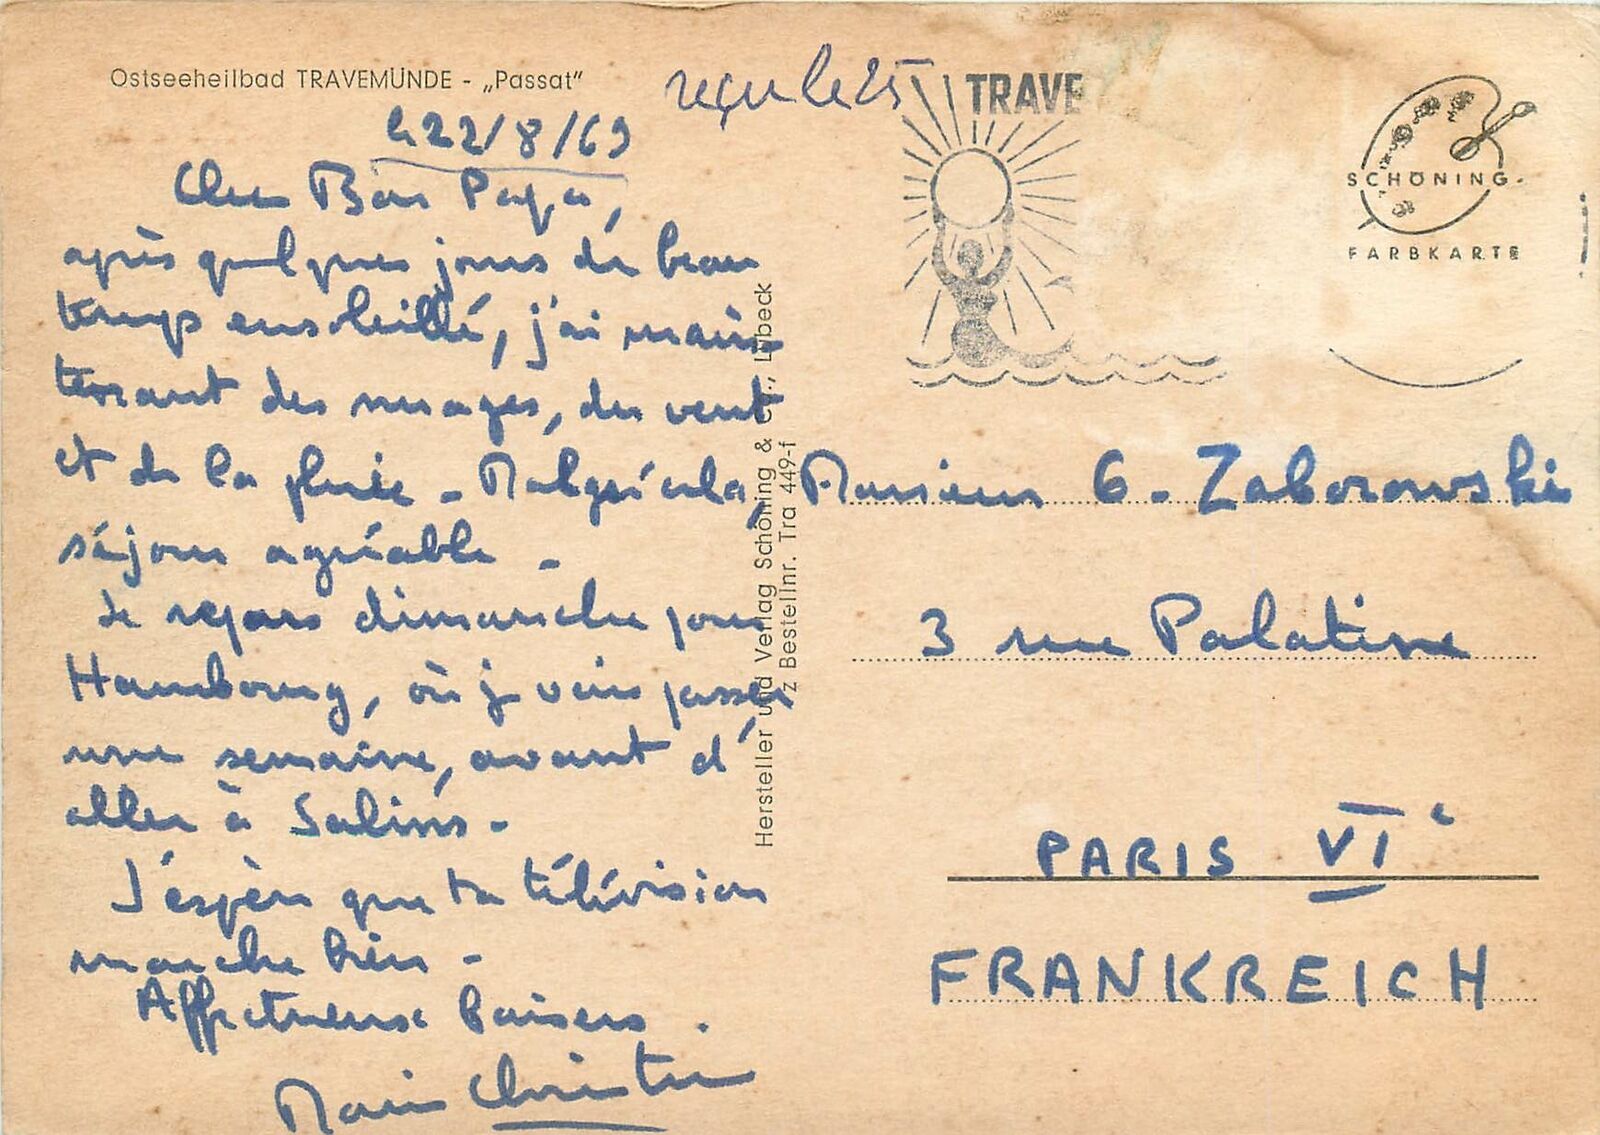 Ostseeheilbad TRAVEMÜNDE - „Passat"
reçu le 25
le 22/8/69
Cher Bon Papa,
après quelques jours de beau
temps ensoleillé, j'ai main
tenant des nuages, du vent
et de la pluie - Malgré cela,
séjour agréable -
Je repars dimanche pour
Hambourg, où je vais passer
une semaine, avant d'
aller à Salins -
J'espère que ta télévision
marche bien -
Affectueux baisers.
Marie Christine
Hersteller und Verlag Schöning & Co., Lübeck
z Bestellnr. Tra 449-f
TRAVE
SCHÖNING-
FARBKARTE
Monsieur G. Zaborowski
3 rue Palatine
PARIS VIe
FRANKREICH